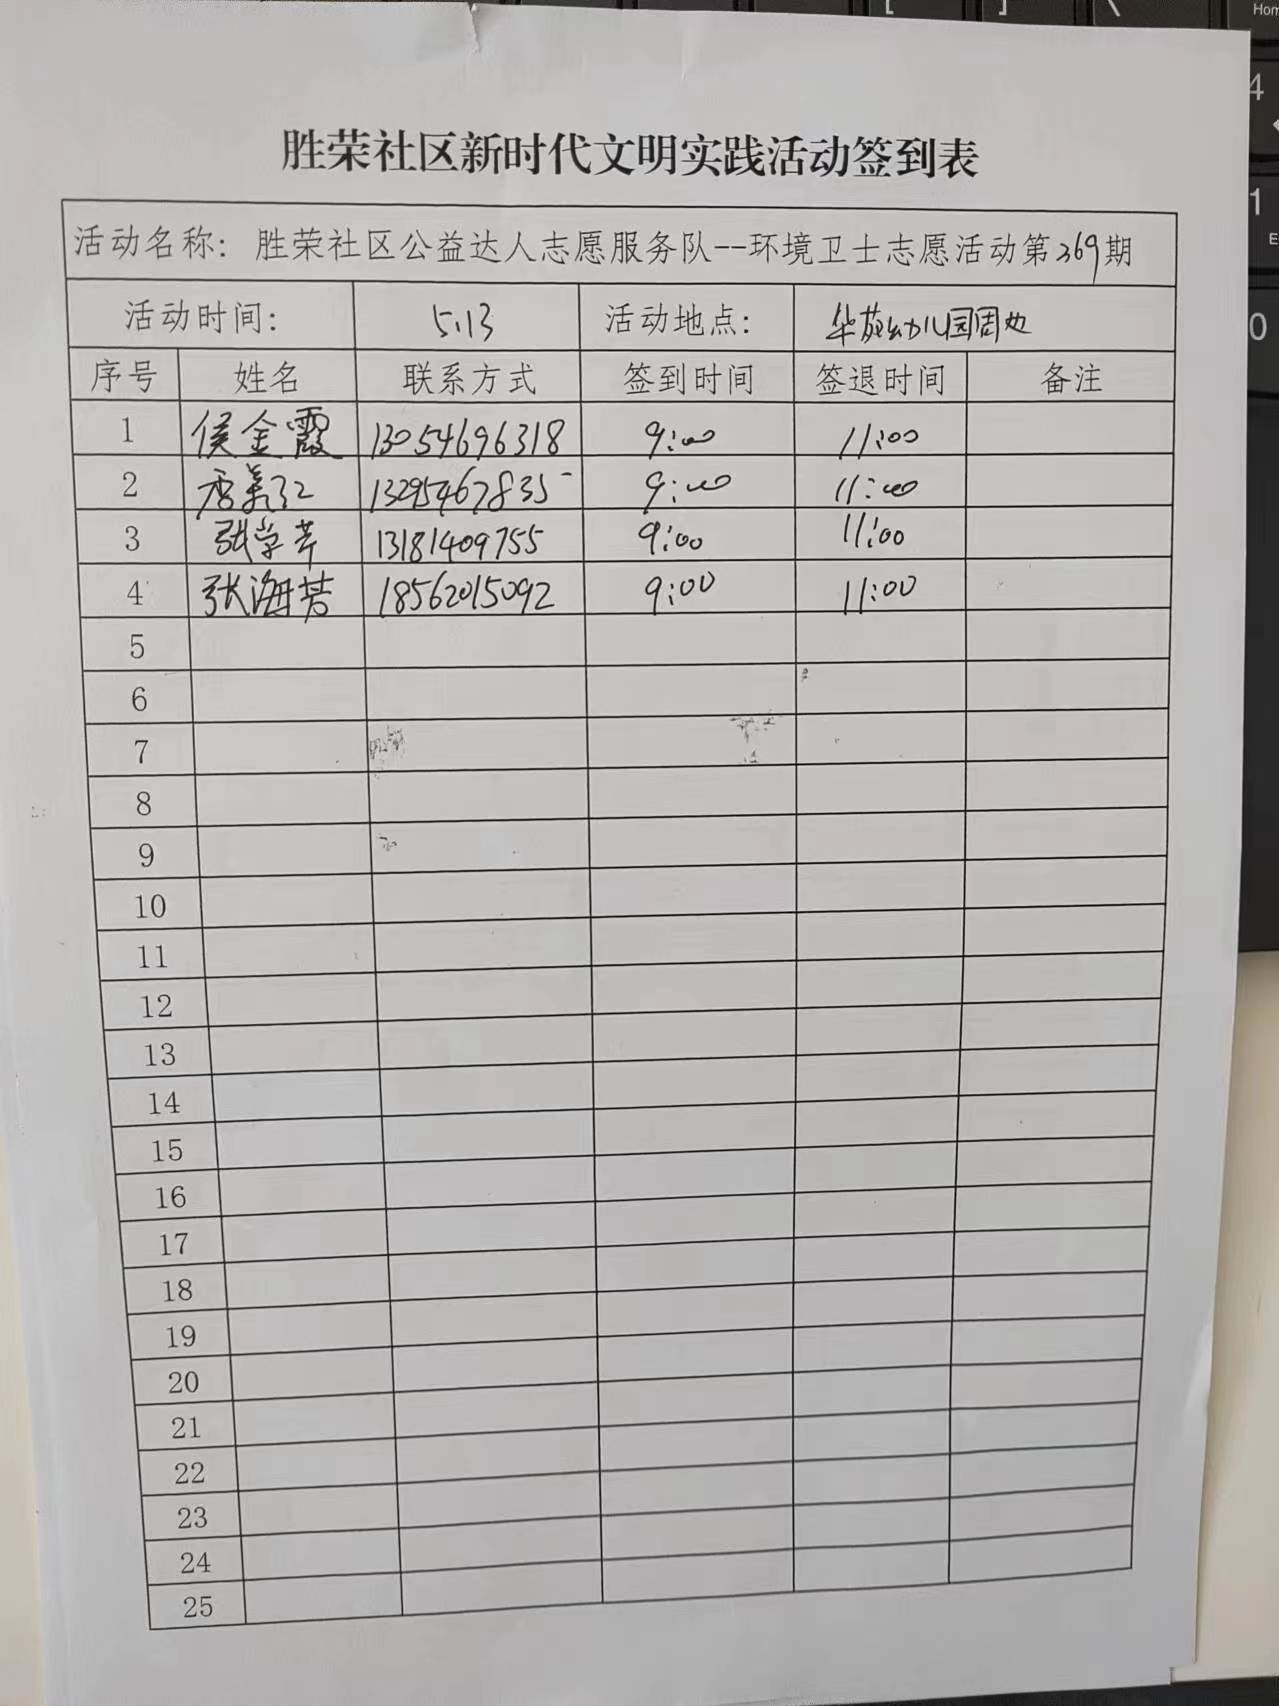 胜荣社区新时代文明实践活动签到表
活动名称：胜荣社区公益达人志愿服务队--环境卫士志愿活动第369期
活动时间： 5.13 活动地点： 华苑幼儿园周边
序号 姓名 联系方式 签到时间 签退时间 备注
1 侯金霞 13054696318 9:00 11:00
2 13295467835 9:00 11:00
3 张学芹 13181409755 9:00 11:00
4 张海芳 18562015092 9:00 11:00
5
6
7
8
9
10
11
12
13
14
15
16
17
18
19
20
21
22
23
24
25
[
]
\
Hom
4
1
E
0